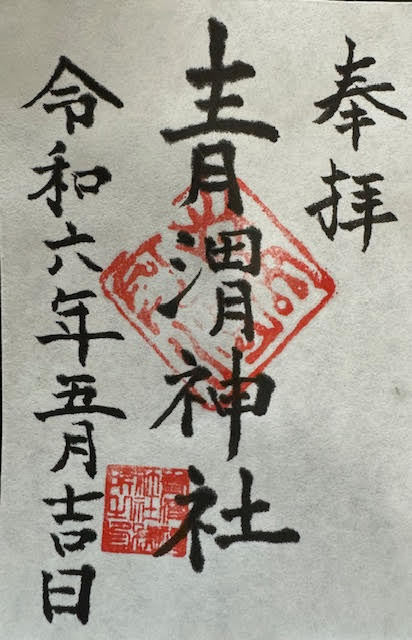 奉拝
青渭神社
令和六年五月吉日